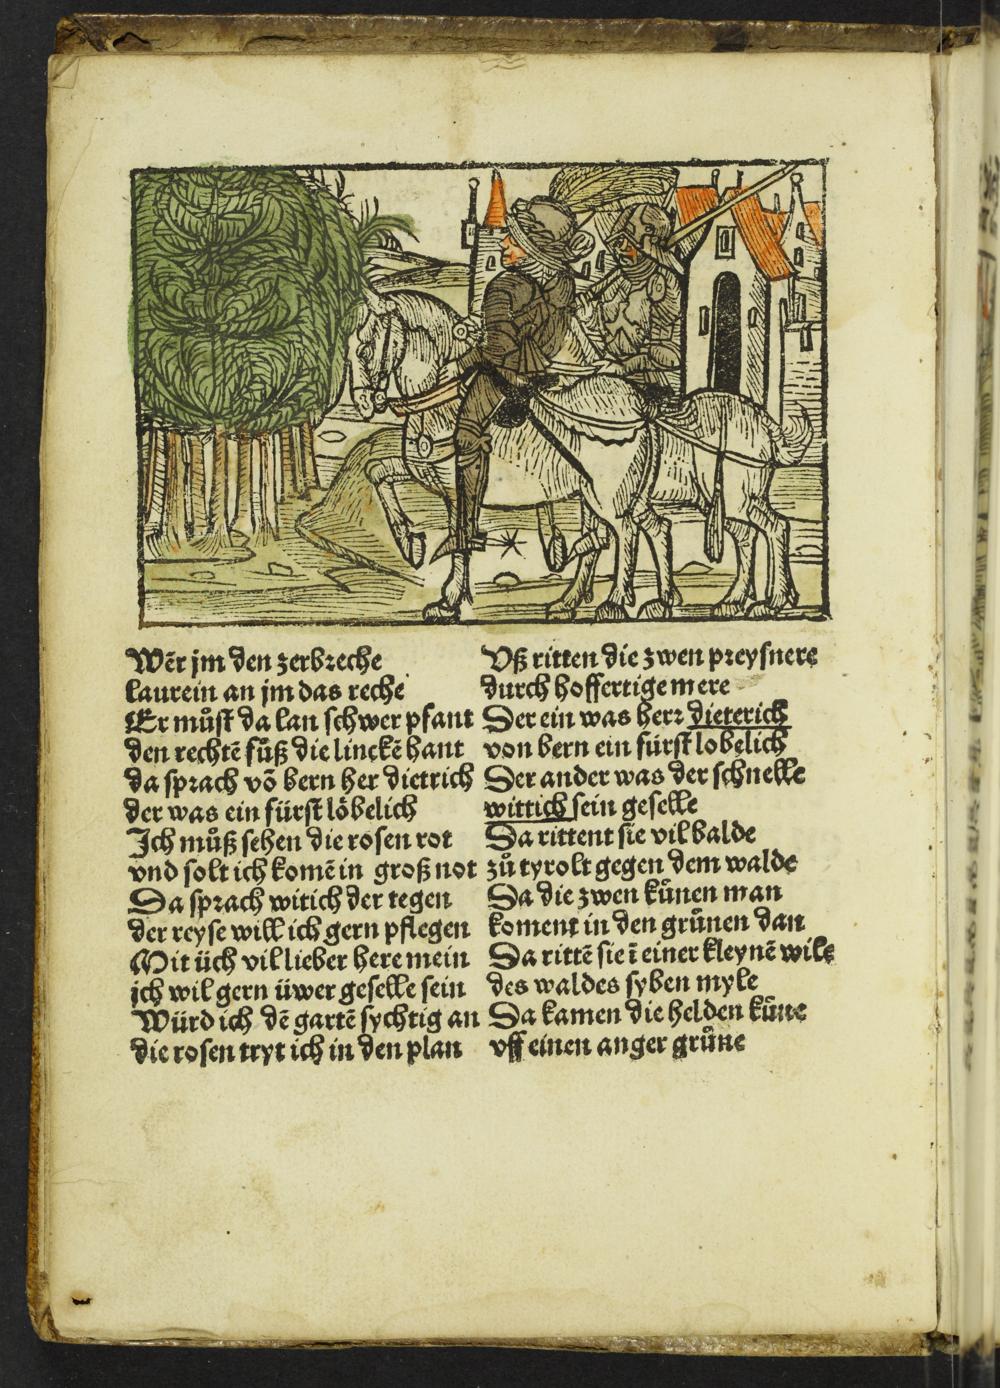 Wēr jm den zerbreche
laurein an jm das reche
Er můst da lan schwer pfant
den rechtē fůß die linckē hant
da sprach vō bern her dietrich
der was ein fürst löbelich
Ich můß sehen die rosen rot
vnd solt ich komē in groß not
Da sprach witich der tegen
der reyse will ich gern pflegen
Mit üch vil lieber here mein
ich wil gern üwer geselle sein
Würd ich dē gartē sychtig an
die rosen tryt ich in den plan
Vß ritten die zwen preysnere
durch hoffertige mere
Der ein was herr dieterich
von bern ein fürst lobelich
Der ander was der schnelle
wittich sein geselle
Da rittent sie vil balde
zů tyrolt gegen dem walde
Da die zwen kůnen man
koment in den grůnen dan
Da rittē sie ī einer kleynē wile
des waldes syben myle
Da kamen die helden kůne
vff einen anger grůne